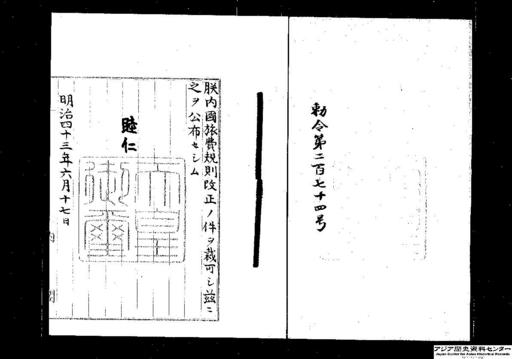 勅令第二百七十四号
朕内國旅費規則改正ノ件ヲ裁可シ茲ニ
之ヲ公布セシム
睦仁
天皇
御璽
明治四十三年六月十七日
内閣
アジア歴史資料センター
Japan Center for Asian Historical Records